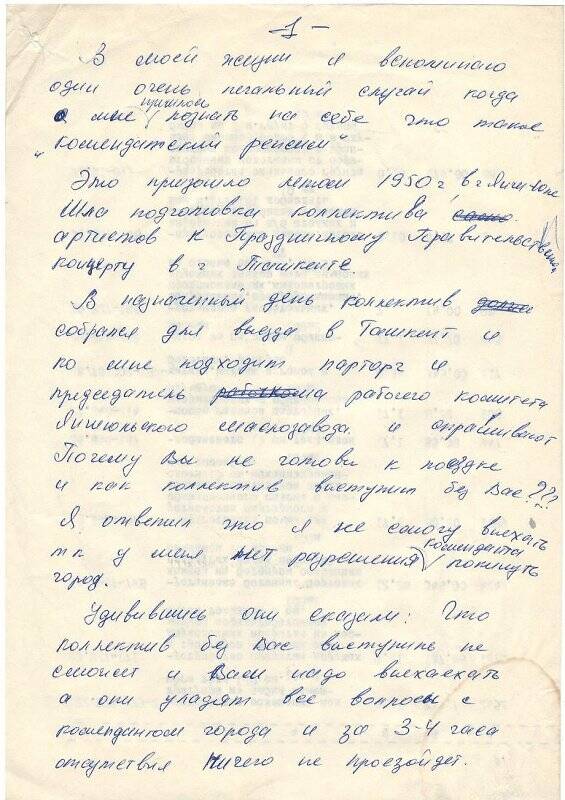 - 1 -
В моей жизни я вспоминаю
один очень печальный случай когда
мне пришлось познать на себе что такое
"комендатский репсии"
Это призошло летом 1950 г в г Янгиюле
Шла подготовка коллектива
артистов к Праздничному Правительственному
концерту в г Ташкенте.
В назначенный день коллектив
собрался для выезда в Ташкент и
ко мне подходит парторг и
председатель рабочкома рабочего комитета
Янгиюльского маслозавода и спрашивают
Почему Вы не готовы к поездке
и как коллектив выступит без Вас???
Я ответил что я не смогу выехать
тк у меня нет разрешения коменданта покинуть
город.
Удивившись они сказали: Что
коллектив без Вас выступить не
сможет и Вам надо выехаехать
а они уладят все вопросы с
комендантом города и за 3-4 часа
отсутствия ничего не проезойдет.